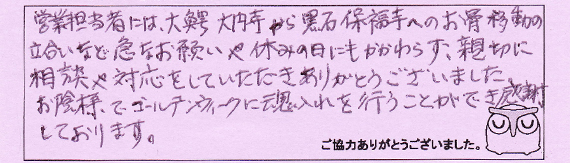 営業担当者には、大鰐 大円寺から黒石保福寺へのお骨移動の
立合いなど急なお願いや休みの日にもかかわらず、親切に
相談や対応をしていただきありがとうございました。
お陰様で、ゴールデンウィークに魂入れを行うことができ感謝
しております。
ご協力ありがとうございました。